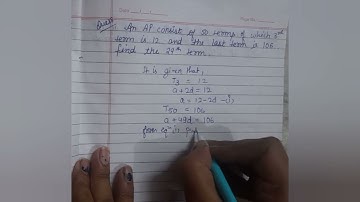 Ques: An AP consist of 50 terms of which 3rd
term is 12 and the last term is 106
find the 29th term.
It is given that,
T3 = 12
a+2d = 12
a = 12-2d -(i)
T50 = 106
a + 49d = 106
from eqn